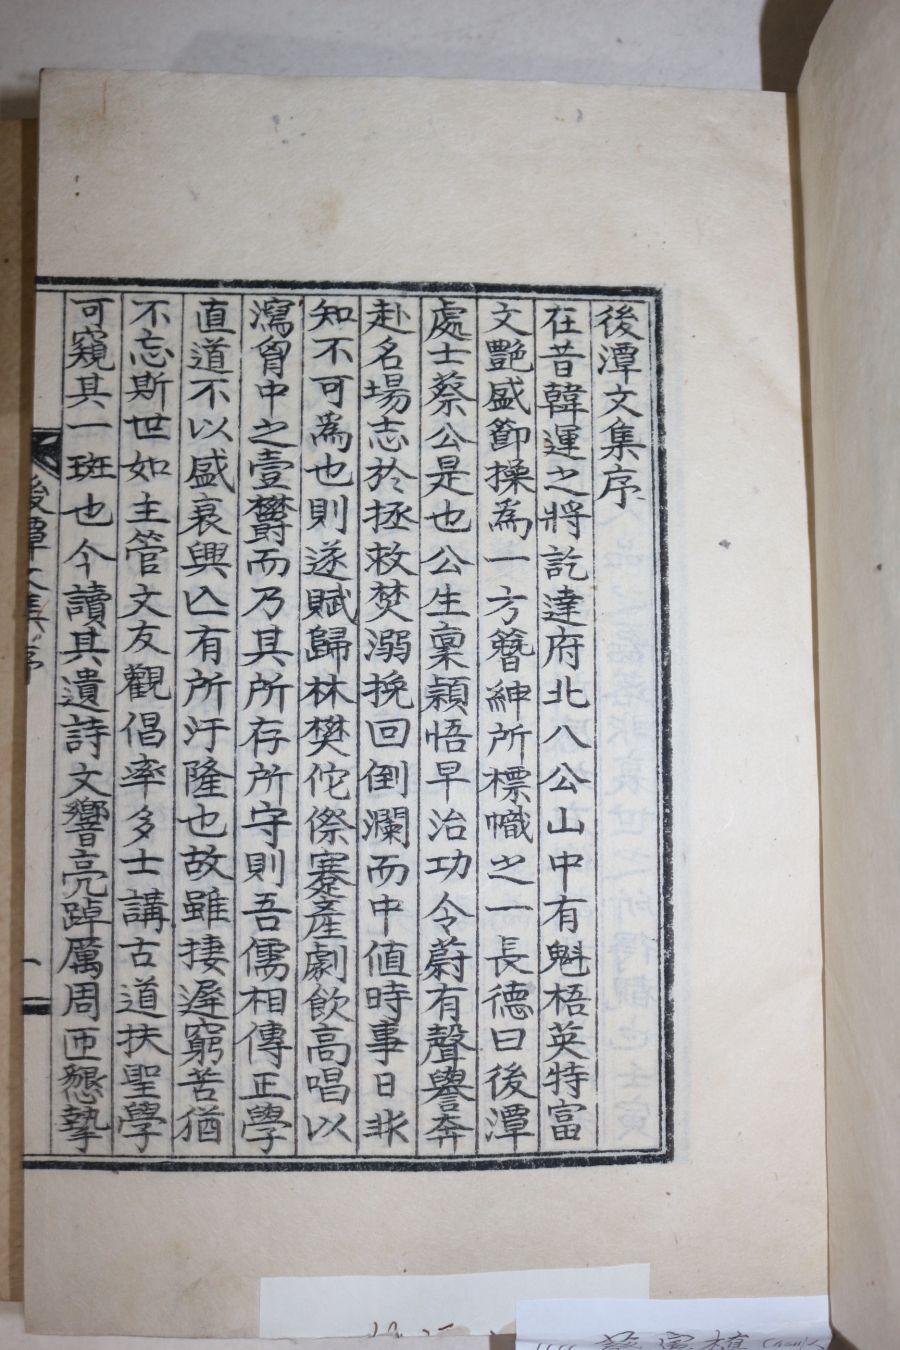 後潭文集序
在昔韓運之將訖達府北八公山中有魁梧英特富
文艶盛節操為一方簪紳所標幟之一長德曰後潭
處士蔡公是也公生稟穎悟早治功令蔚有聲譽奔
赴名場志於拯救焚溺挽回倒瀾而中値時事日非
知不可爲也則遂賦歸林樊侘傺蹇產劇飮高唱以
瀉胷中之壹欝而乃其所存所守則吾儒相傳正學
直道不以盛衰興亾有所汙隆也故雖捿遲窮苦猶
不忘斯世如主管文友觀倡率多士講古道扶聖學
可窺其一斑也今讀其遺詩文響亮踔厲周匝懇摯
後潭文集序
一